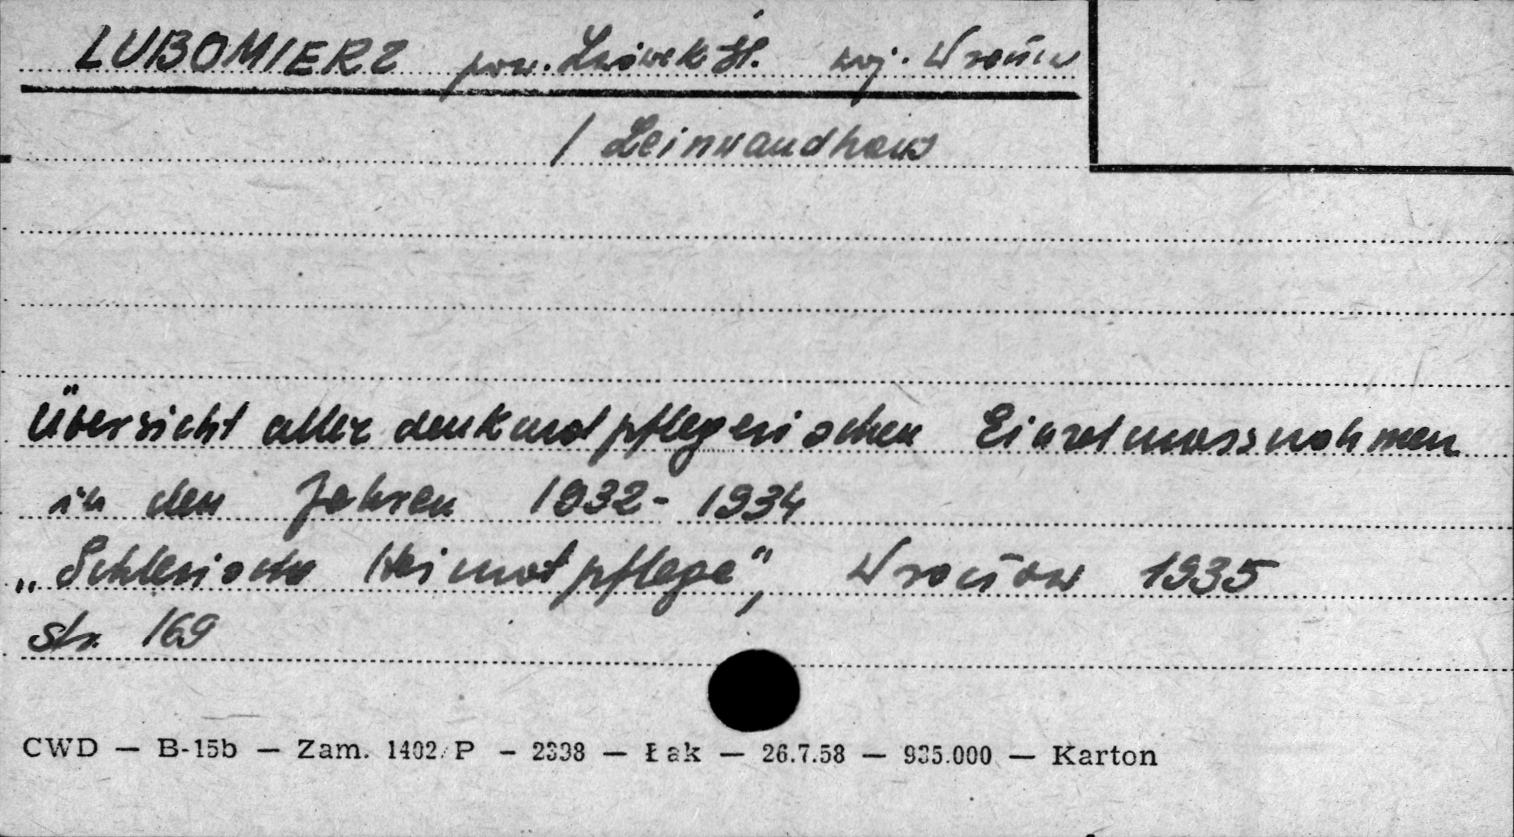 LUBOMIERZ pow. Lwówek Śl. woj. Wrocław
/ Leinwandhaus
Übersicht aller denkmalpflegerischen Einzelmassnahmen
in den Jahren 1932-1934
„Schlesische Heimatpflege", Wrocław 1935
str. 169
CWD — B-15b — Zam. 1402/P — 2338 — Łak — 26.7.58 — 935.000 — Karton